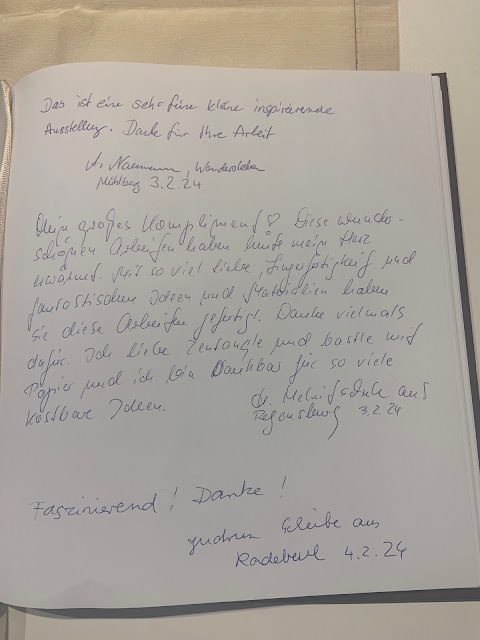 Das ist eine sehr feine kleine inspirierende
Ausstellung. Danke für Ihre Arbeit
A. Naumann, Wandersleben
Mühlberg 3.2.24
Mein großes Kompliment ♡ Diese wunder-
schönen Arbeiten haben heute mein Herz
erwärmt. Mit so viel Liebe, Fingerfertigkeit und
fantastischen Ideen und Materialien haben
Sie diese Arbeiten gefertigt. Danke vielmals
dafür. Ich liebe Zentangle und bastle mit
Papier und ich bin dankbar für so viele
kostbare Ideen.
aus
Regensburg 3.2.24
Faszinierend! Danke!
Gudrun aus
Radebeul 4.2.24